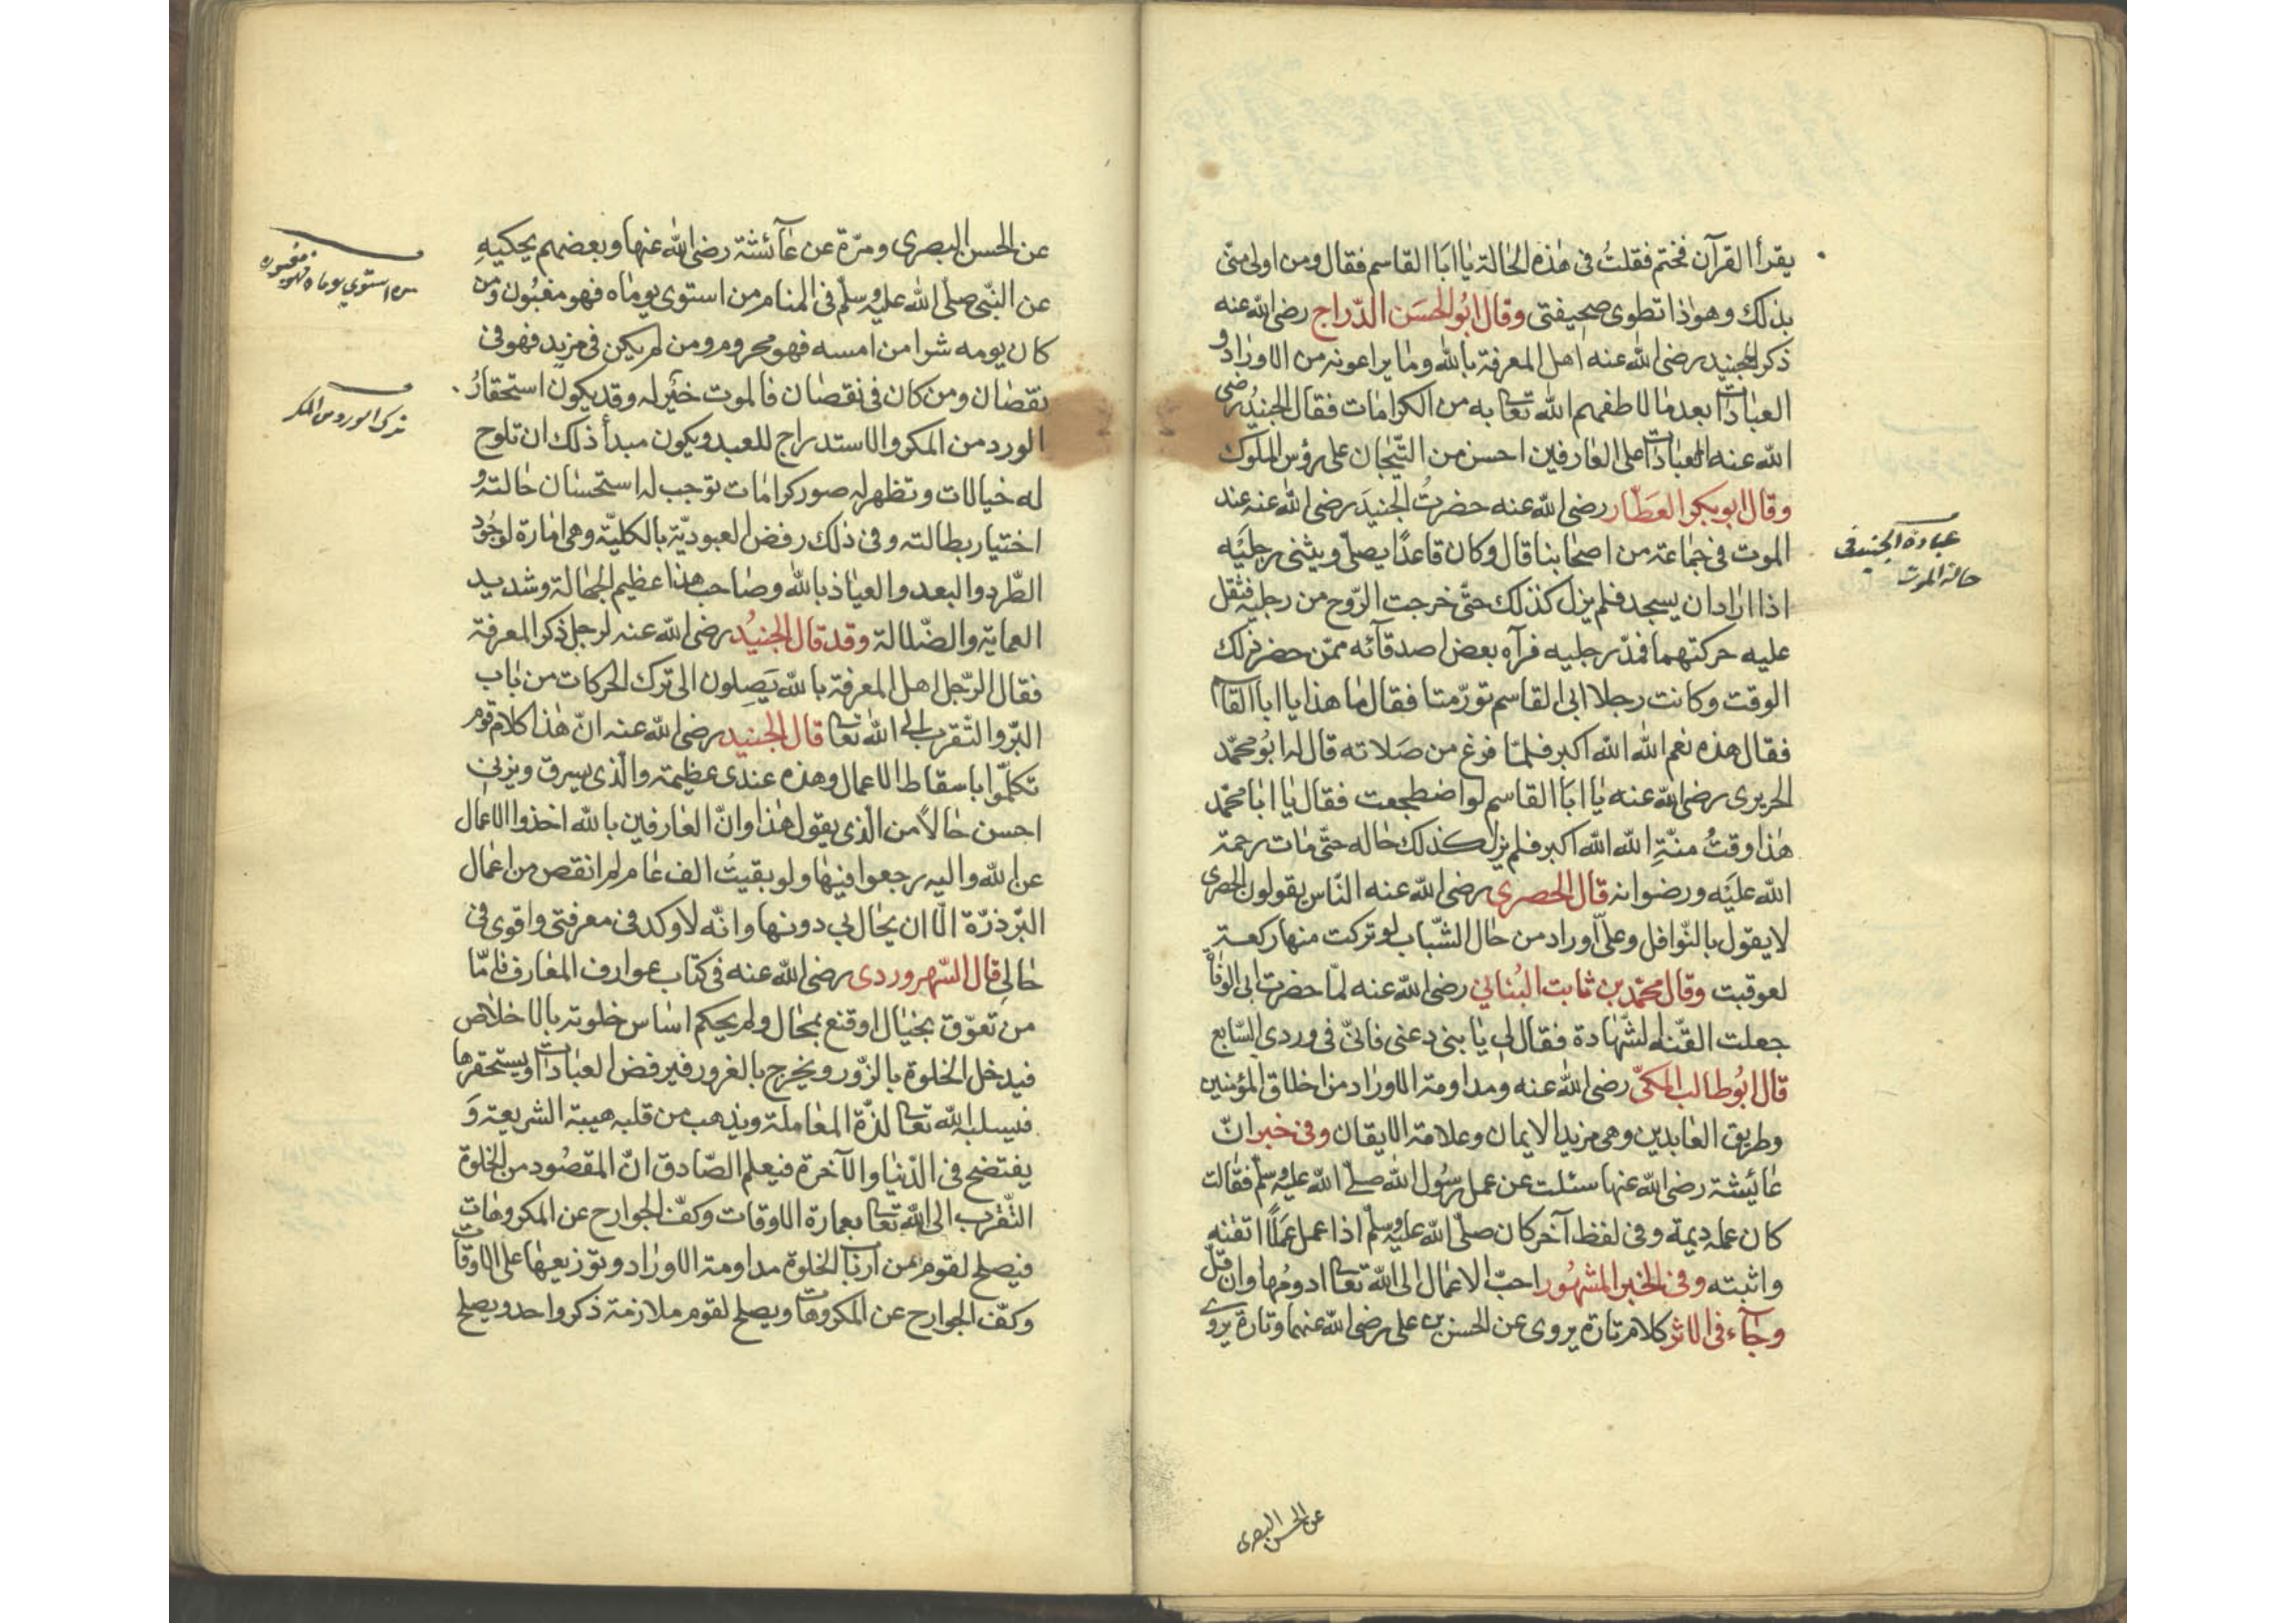 يقرأ القرآن فختم فقلتُ فى هٰذه الحٰالة يٰا ابٰا القاسم فقال ومن اولى منّى
بذلك وهو ذا تطوى صحيفتى وقال ابُو الحسَن الدّراج رضى اللّه عنه
ذكر الجنيد رضى اللّه عنه اهل المعرفة باللّٰه ومٰا يراعونه من الاورٰاد و
العبٰادٰات بعد مٰا لاطفهم اللّٰه تعٰا به من الكرامٰات فقال الجنيدُ رضى
اللّه عنه العبٰادٰات على العٰارفين احسن من التّيجٰان على رؤس الملوك
وقال ابو بكر العَطّار رضى اللّه عنه حضرتُ الجنيدَ رضى اللّٰه عنه عند
الموت فى جمٰاعة من اصحٰابنا قال وكان قاعدًا يصلّى ويثنى رجليَه
اذا ارٰاد ان يسجد فلم يزل كذلك حتّى خرجت الرّوح من رجليه فثقل
عليه حركتهما فمدّ رجليه فرآه بعض اصدقآئه ممّن حضر ذلك
الوقت وكانت رجلا ابى القاسم تورّمتا فقال مٰا هذا يا ابا القاسم
فقال هذه نعم اللّٰه اللّٰه اكبر فلمّا فرغ من صَلاته قال له ابُو محمّد
الحريرى رضى اللّه عنه يٰا ابَا القاسم لو اضطجعت فقال يٰا ابٰا محمّد
هٰذا وقتُ منّةِ اللّٰه اللّٰه اكبر فلم يزل كذلك حٰاله حتّى مٰات رحمة
اللّٰه عليَه ورضوانه قال الحصرى رضى اللّٰه عنه النّاس يقولون الحصرى
لا يقول بالنّوافل وعلىّ اوراد من حٰال الشّباب لو تركت منها ركعة
لعوقبت وقال محمّد بن ثابت البُنانى رضى اللّٰه عنه لمّا حضرت ابى الوفٰاة
جعلت القّنه الشّهادة فقال لى يٰا بنى دعنى فانّى فى وردى السّابع
قال ابُو طالب المكىّ رضى اللّٰه عنه ومداومة الاورٰاد من اخلاق المؤمنين
وطريق العٰابدين وهى مزيد الايمان وعلامة الايقان وفى خبر انّ
عٰائيشة رضى اللّٰه عنها سئلت عن عمل رسُول اللّٰه صلّى اللّٰه عليه وسلّم فقالت
كان عمله ديمة وفى لفظ آخر كان صلّى اللّٰه عليه وسلّم اذا عمل عَمَلًا اتقنه
واثبته وفى الخبر المشهُور احبّ الاعمٰال الى اللّٰه تعٰا ادومُها وان قلّ
وجٰآء فى الاثر كلام تارة يروى عن الحسن بن على رضى اللّٰه عنهما وتارة يروى
عن الحسن البصرى
عبادة الجنيد فى
حالة الموت
عن الحسن البصرى ومرّة عن عٰآئشة رضى اللّٰه عنها وبعضهم يحكيهِ
عن النّبى صلّى اللّٰه عليه وسلّم فى المنام من استوى يومٰاه فهو مغبُون ومن
كان يومه شرا من امسه فهو محروم ومن لم يكن فى مزيد فهو فى
نقصٰان ومن كان فى نقصٰان فالموت خيَر له وقد يكون استحقارُ
الورد من المكر والاستدراج للعبد ويكون مبدأ ذلك ان تلوح
له خيالات وتظهر له صور كرامٰات توجب له استحسٰان حٰالته و
اختيار بطالته وفى ذلك رفض العبوديّة بالكليّة وهى امٰارة لوجُود
الطّرد والبعد والعيٰاذ باللّٰه وصٰاحب هذا عظيم الجهٰالة وشديد
العماية والضّلالة وقد قال الجنيُد رضى اللّٰه عنه لرجل ذكر المعرفة
فقال الرّجل اهل المعرفة باللّٰه يَصِلون الى ترك الحركات من بٰاب
البرّ والتّقرب الى اللّٰه تعٰا قال الجنيد رضى اللّٰه عنه انّ هٰذا كلام قوم
تكلّموا باسقاط الاعمال وهذه عندى عظيمة والّذى يسرق ويزنى
احسن حٰالاً من الّذى يقول هٰذا وانّ العٰارفين باللّٰه اخذوا الاعمٰال
عن اللّٰه واليه رجعوا فيهٰا ولو بقيتُ الف عٰام لم انقص من اعمٰال
البرّ ذرّة الّا ان يحٰال بى دونها وانّه لاوكد فى معرفتى واقوى فى
حٰالى قال السّهروردى رضى اللّٰه عنه فى كتٰاب عوارف المعٰارف فامّا
من تعوّق بخيٰال او قنع بمحٰال ولم يحكم اسٰاس خلوته بالاخلاص
فيدخل الخلوة بالزّور ويخرج بالغرور فيرفض العبٰادٰات ويستحقرها
فيسلبه اللّٰه تعٰا لذّة المعٰاملة ويذهب من قلبه هيبة الشريعة وَ
يفتضح فى الدّنيٰا والآخرة فيعلم الصّادق انّ المقصُود من الخلوة
التّقرب الى اللّٰه تعٰا بعمارة الاوقات وكفّ الجوارح عن المكروهٰات
فيصلح لقوم من اربٰاب الخلوة مداومة الاورٰاد وتوزيعهٰا على الاوقات
وكفّ الجوارح عن المكروهٰات ويصلح لقوم ملازمة ذكر واحد ويصلح
من استوى يوماه فهو مغبون
ترك الورد من المكر